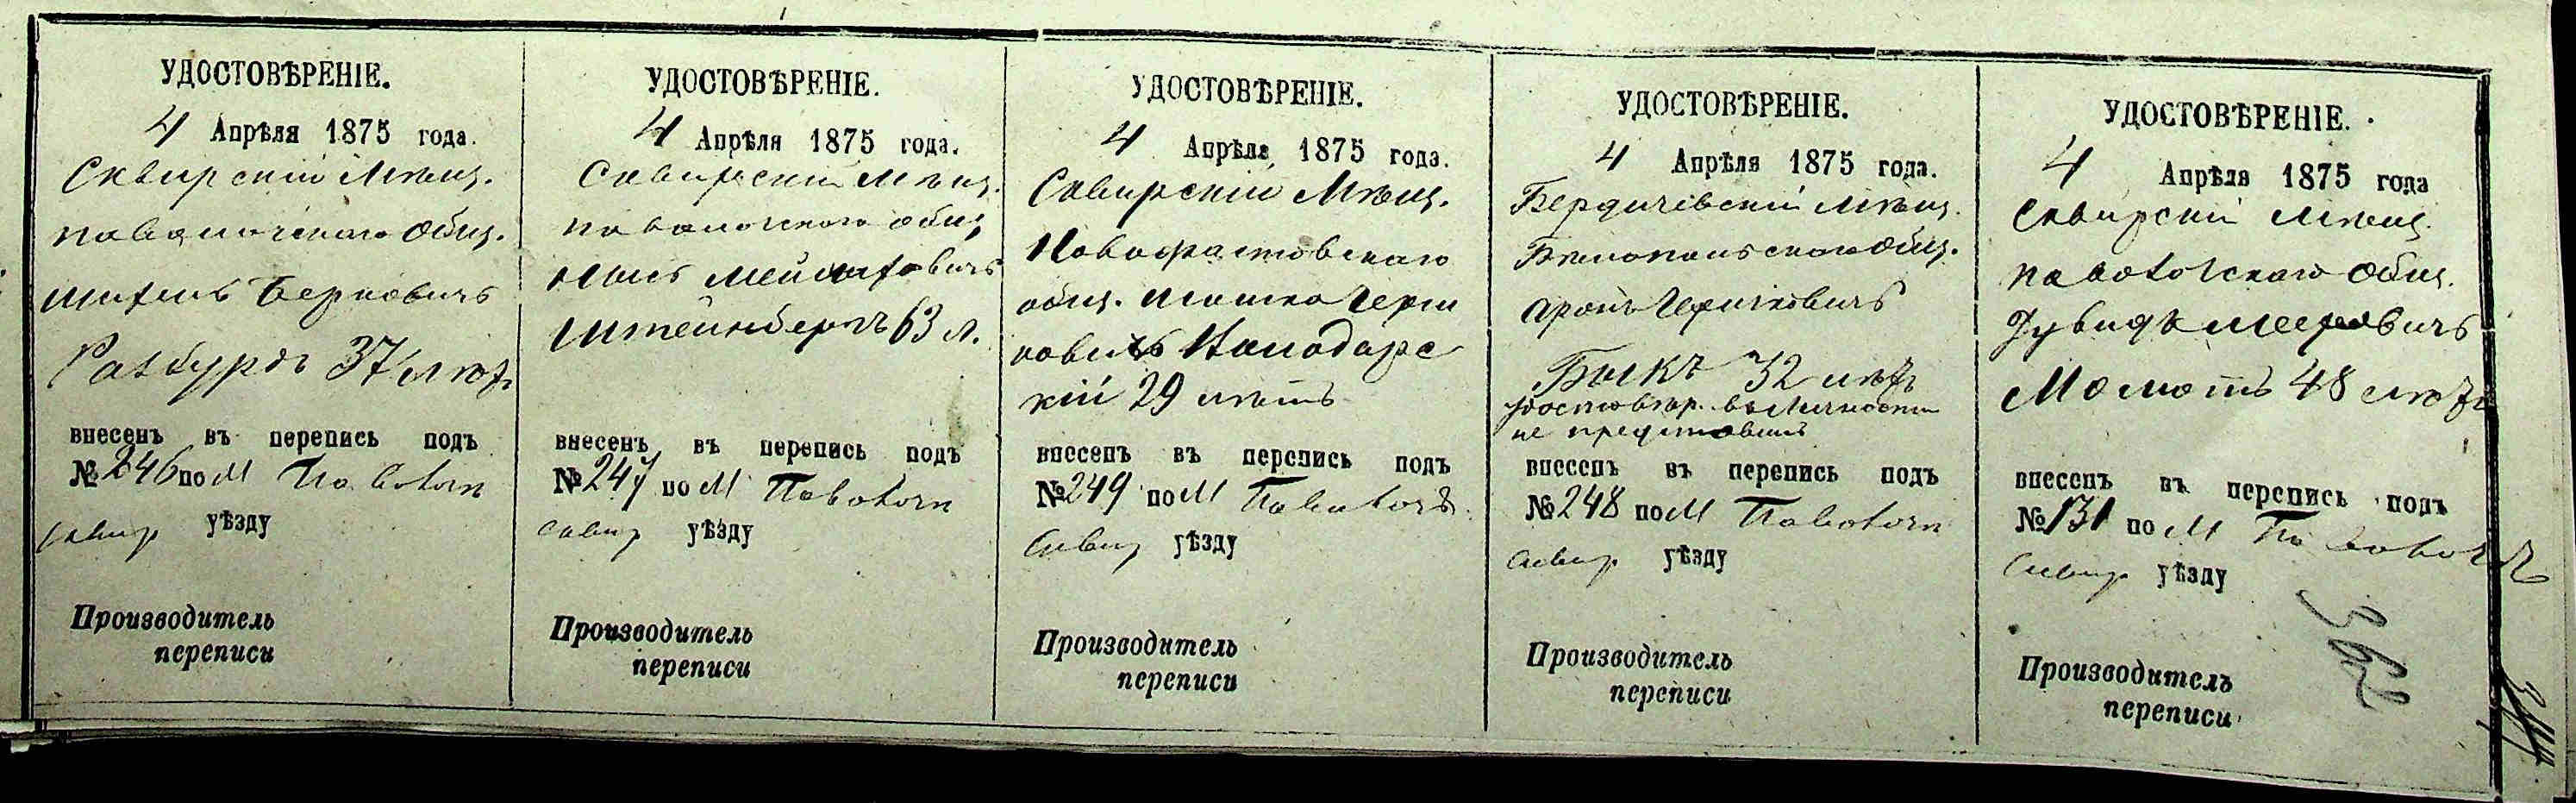 УДОСТОВѢРЕНІЕ.
4 Апрѣля 1875 года.
Сквирскій Мѣщ.
паволочскаго общ.
Берковичъ
37 лѣтъ
внесенъ въ перепись подъ
№ 246 по М Паволочи
Сквир уѣзду
Производитель
переписи
УДОСТОВѢРЕНІЕ.
4 Апрѣля 1875 года.
Сквирскій Мѣщ.
паволочскаго общ.
Штейнбергъ 63 л.
внесенъ въ перепись подъ
№ 247 по М Паволочи
Сквир уѣзду
Производитель
переписи
УДОСТОВѢРЕНІЕ.
4 Апрѣля 1875 года.
Сквирскій Мѣщ.
Новофастовскаго
общ. Герш
ковичъ
кій 29 лѣтъ
внесенъ въ перепись подъ
№ 249 по М Паволочѣ
Сквир уѣзду
Производитель
переписи
УДОСТОВѢРЕНІЕ.
4 Апрѣля 1875 года.
Бердичевскій Мѣщ.
Бѣлопольскаго общ.
Аронъ Гершковичъ
Быкъ 32 лѣтъ
удостовѣр. въ личности
не представилъ
внесенъ въ перепись подъ
№ 248 по М Паволочи
Сквир уѣзду
Производитель
переписи
УДОСТОВѢРЕНІЕ.
4 Апрѣля 1875 года
Сквирскій Мѣщ.
паволочскаго общ.
Мееровичъ
Момотъ 48 лѣтъ
внесенъ въ перепись подъ
№ 131 по М Паволочи
Сквир уѣзду
Производитель
переписи